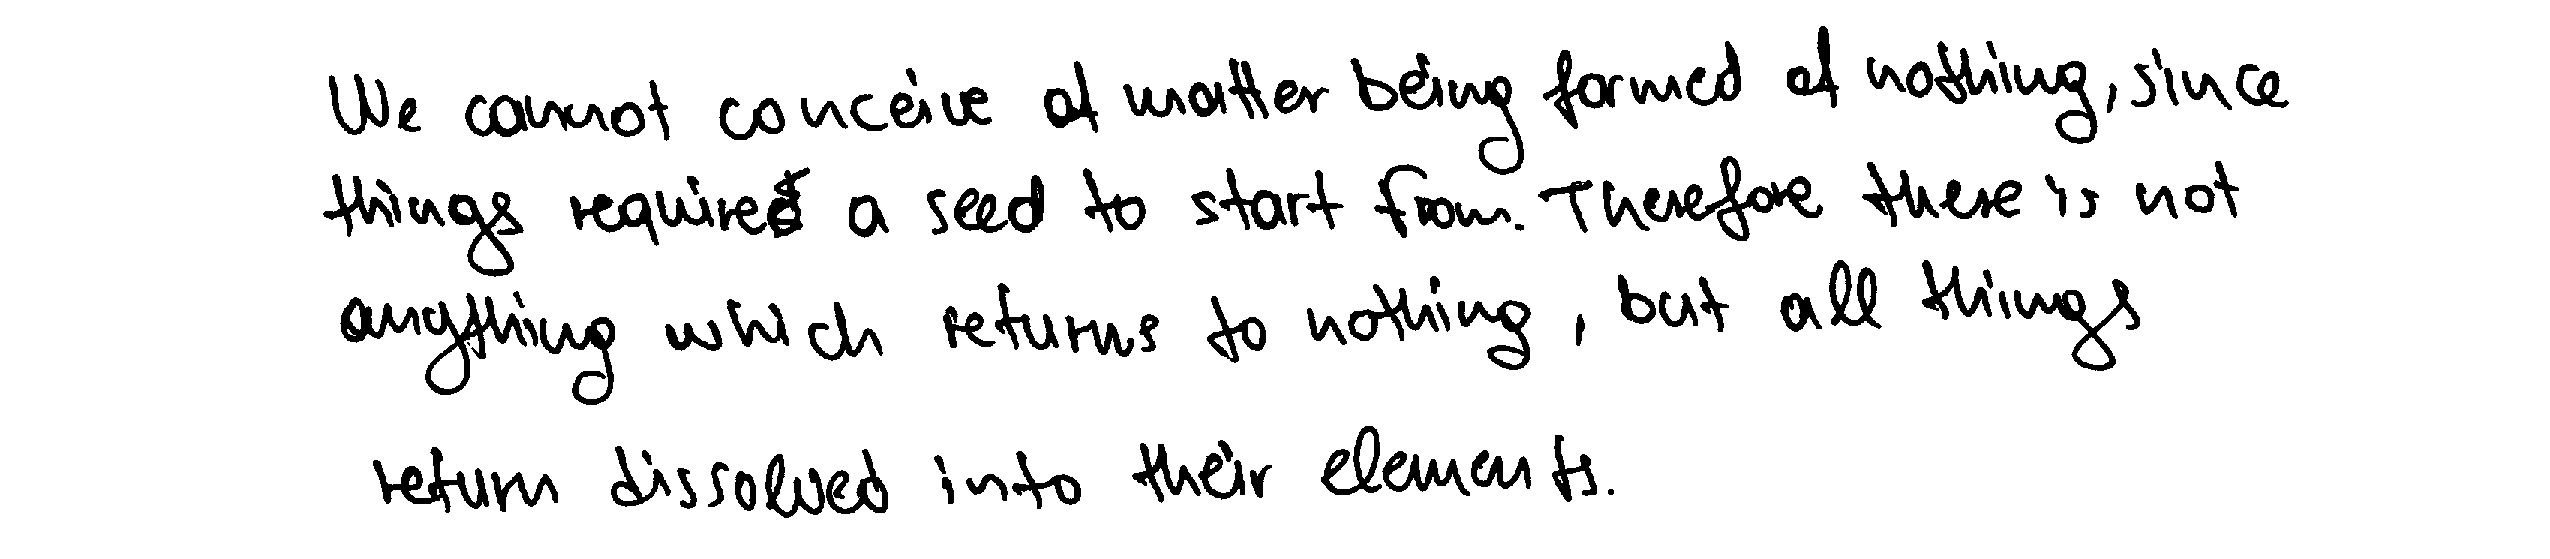 We cannot conceive of matter being formed of nothing, since
things require a seed to start from. Therefore there is not
anything which returns to nothing, but all things
return dissolved into their elements.